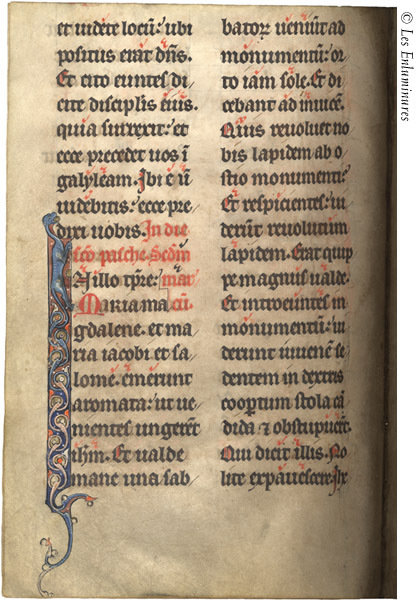 et uidete locū: ubi
positus erat dn̄s.
Et cito euntes di
cite disciplis eius.
quia surrexit: et
ecce precedet uos ī
galyleam. Ibi eū
uidebitis: ecce pre
dixi uobis. In die
sc̄o pasche. Scdm̄
In illo tp̄re. mar
Maria ma cū.
gdalene. et ma
ria iacobi et sa
lome. emerunt
aromata: ut ue
nientes ungerēt
ih̄m. Et ualde
mane una sab
bator̄ ueniūt ad
monumentū: or
to iam sole. Et di
cebant ad inuicē.
Quis reuoluet no
bis lapidem ab o
stio monumenti:
Et respicientes: ui
derūt reuolutum
lapidem. Erat quip
pe magnus ualde.
Et introeuntes in
monumentū: ui
derunt iuuenē se
dentem in dextris
coopertum stola cā
dida & obstupuerūt.
Qui dicit illis. No
lite expauescere. ih̄m
© Les Enluminures